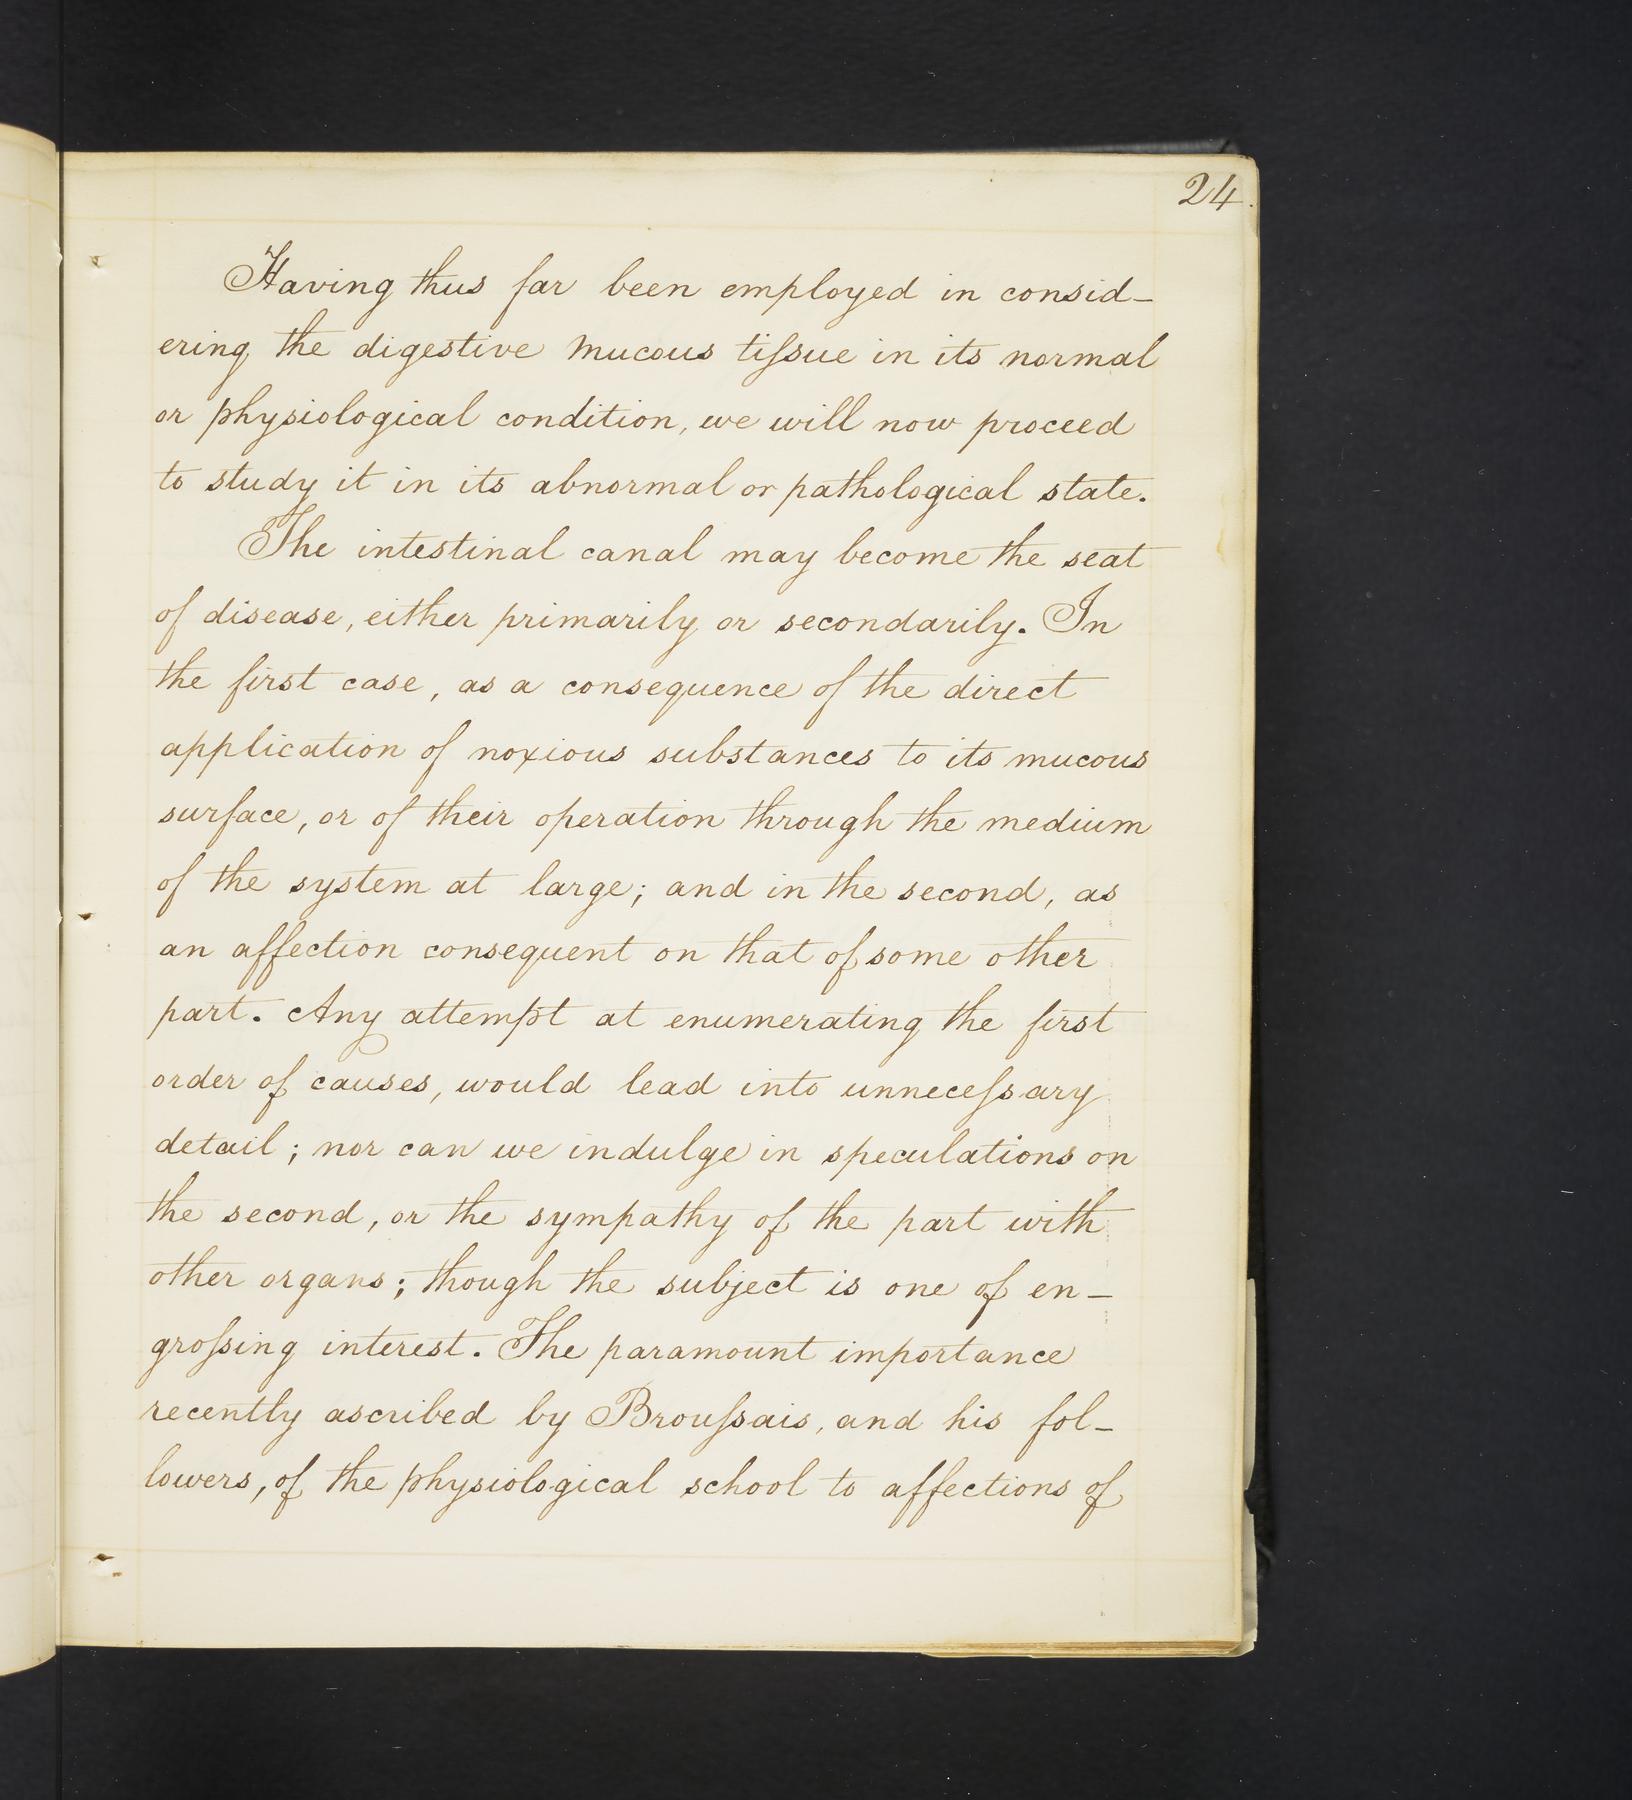 24.
Having thus far been employed in consid-
ering the digestive mucous tiſsue in its normal
or physiological condition, we will now proceed
to study it in its abnormal or pathological state.
The intestinal canal may become the seat
of disease, either primarily or secondarily. In
the first case, as a consequence of the direct
application of noxious substances to its mucous
surface, or of their operation through the medium
of the system at large; and in the second, as
an affection consequent on that of some other
part. Any attempt at enumerating the first
order of causes, would lead into unneceſsary
detail; nor can we indulge in speculations on
the second, or the sympathy of the part with
other organs; though the subject is one of en-
groſsing interest. The paramount importance
recently ascribed by Brouſsais, and his fol-
lowers, of the physiological school to affections of